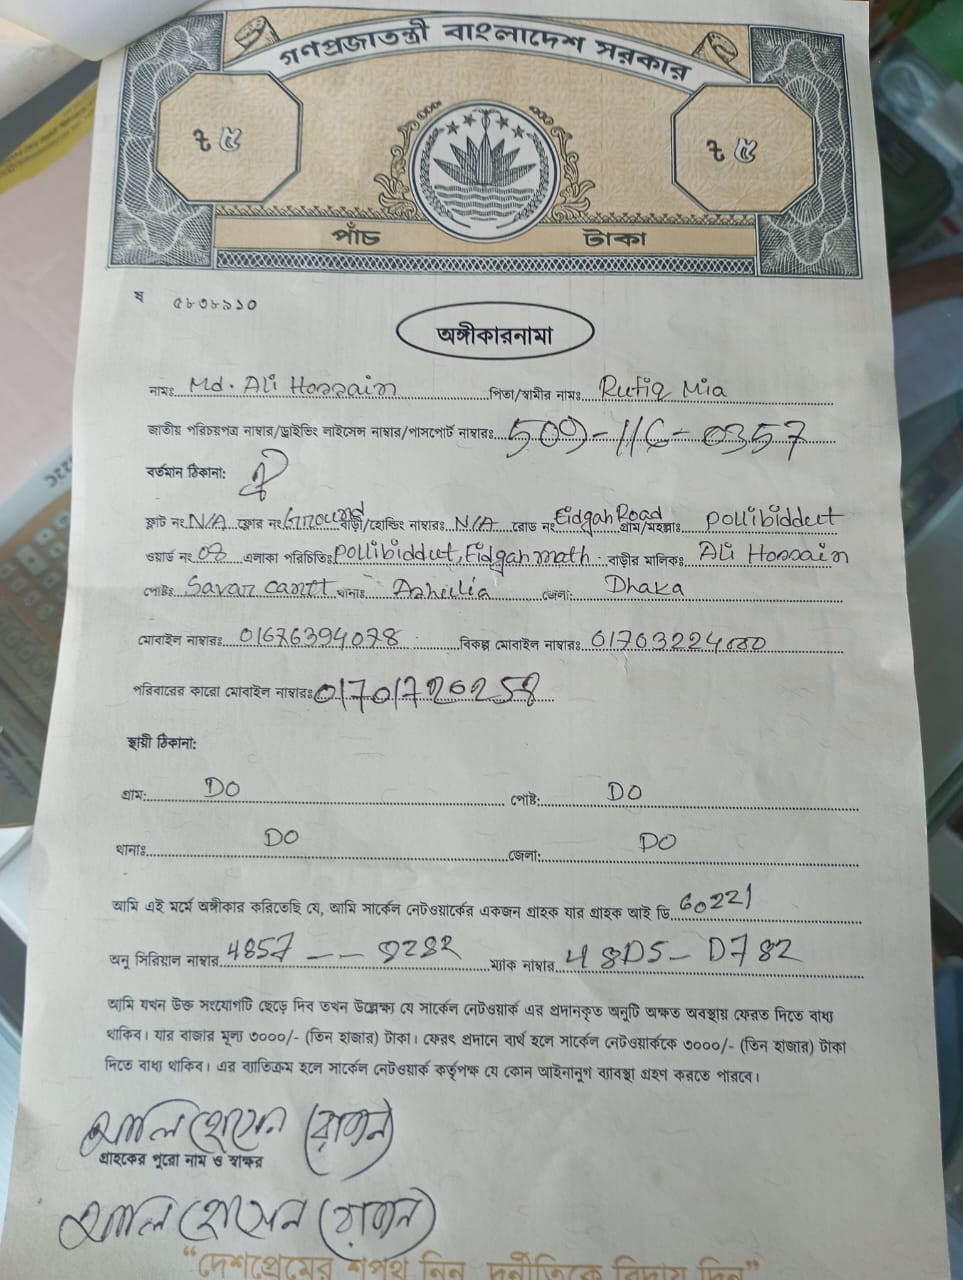 গণপ্রজাতন্ত্রী বাংলাদেশ সরকার
৳ ৫ ৳ ৫
পাঁচ টাকা
ষ ৫৮৩৮৯১০
অঙ্গীকারনামা
নামঃ Md. Ali Hossain পিতা/স্বামীর নামঃ Rufiq Mia
জাতীয় পরিচয়পত্র নাম্বার/ড্রাইভিং লাইসেন্স নাম্বার/পাসপোর্ট নাম্বারঃ 509-116-0357
বর্তমান ঠিকানা:
ফ্লাট নং N/A ফ্লোর নং Ground বাড়ী/হোল্ডিং নাম্বারঃ N/A রোড নং Eidgah Road গ্রাম/মহল্লাঃ pollibiddut
ওয়ার্ড নং 08 এলাকা পরিচিতিঃ pollibiddut, Eidgah math বাড়ীর মালিকঃ Ali Hossain
পোষ্টঃ Savar cantt থানাঃ Ashulia জেলা: Dhaka
মোবাইল নাম্বারঃ 01676394078 বিকল্প মোবাইল নাম্বারঃ
পরিবারের কারো মোবাইল নাম্বারঃ
স্থায়ী ঠিকানা:
গ্রাম: DO পোষ্ট: DO
থানাঃ DO জেলা: DO
আমি এই মর্মে অঙ্গীকার করিতেছি যে, আমি সার্কেল নেটওয়ার্কের একজন গ্রাহক যার গ্রাহক আই ডি 60221
অনু সিরিয়াল নাম্বার 4857 -- 9282 ম্যাক নাম্বার 48D5-D782
আমি যখন উক্ত সংযোগটি ছেড়ে দিব তখন উল্লেক্ষ্য যে সার্কেল নেটওয়ার্ক এর প্রদানকৃত অনুটি অক্ষত অবস্থায় ফেরত দিতে বাধ্য
থাকিব। যার বাজার মূল্য ৩০০০/- (তিন হাজার) টাকা। ফেরৎ প্রদানে ব্যর্থ হলে সার্কেল নেটওয়ার্ককে ৩০০০/- (তিন হাজার) টাকা
দিতে বাধ্য থাকিব। এর ব্যতিক্রম হলে সার্কেল নেটওয়ার্ক কর্তৃপক্ষ যে কোন আইনানুগ ব্যবস্থা গ্রহণ করতে পারবে।
আলি হোসেন
গ্রাহকের পুরো নাম ও স্বাক্ষর
আলি হোসেন
“দেশপ্রেমের শপথ নিন, দুর্নীতিকে বিদায় দিন”